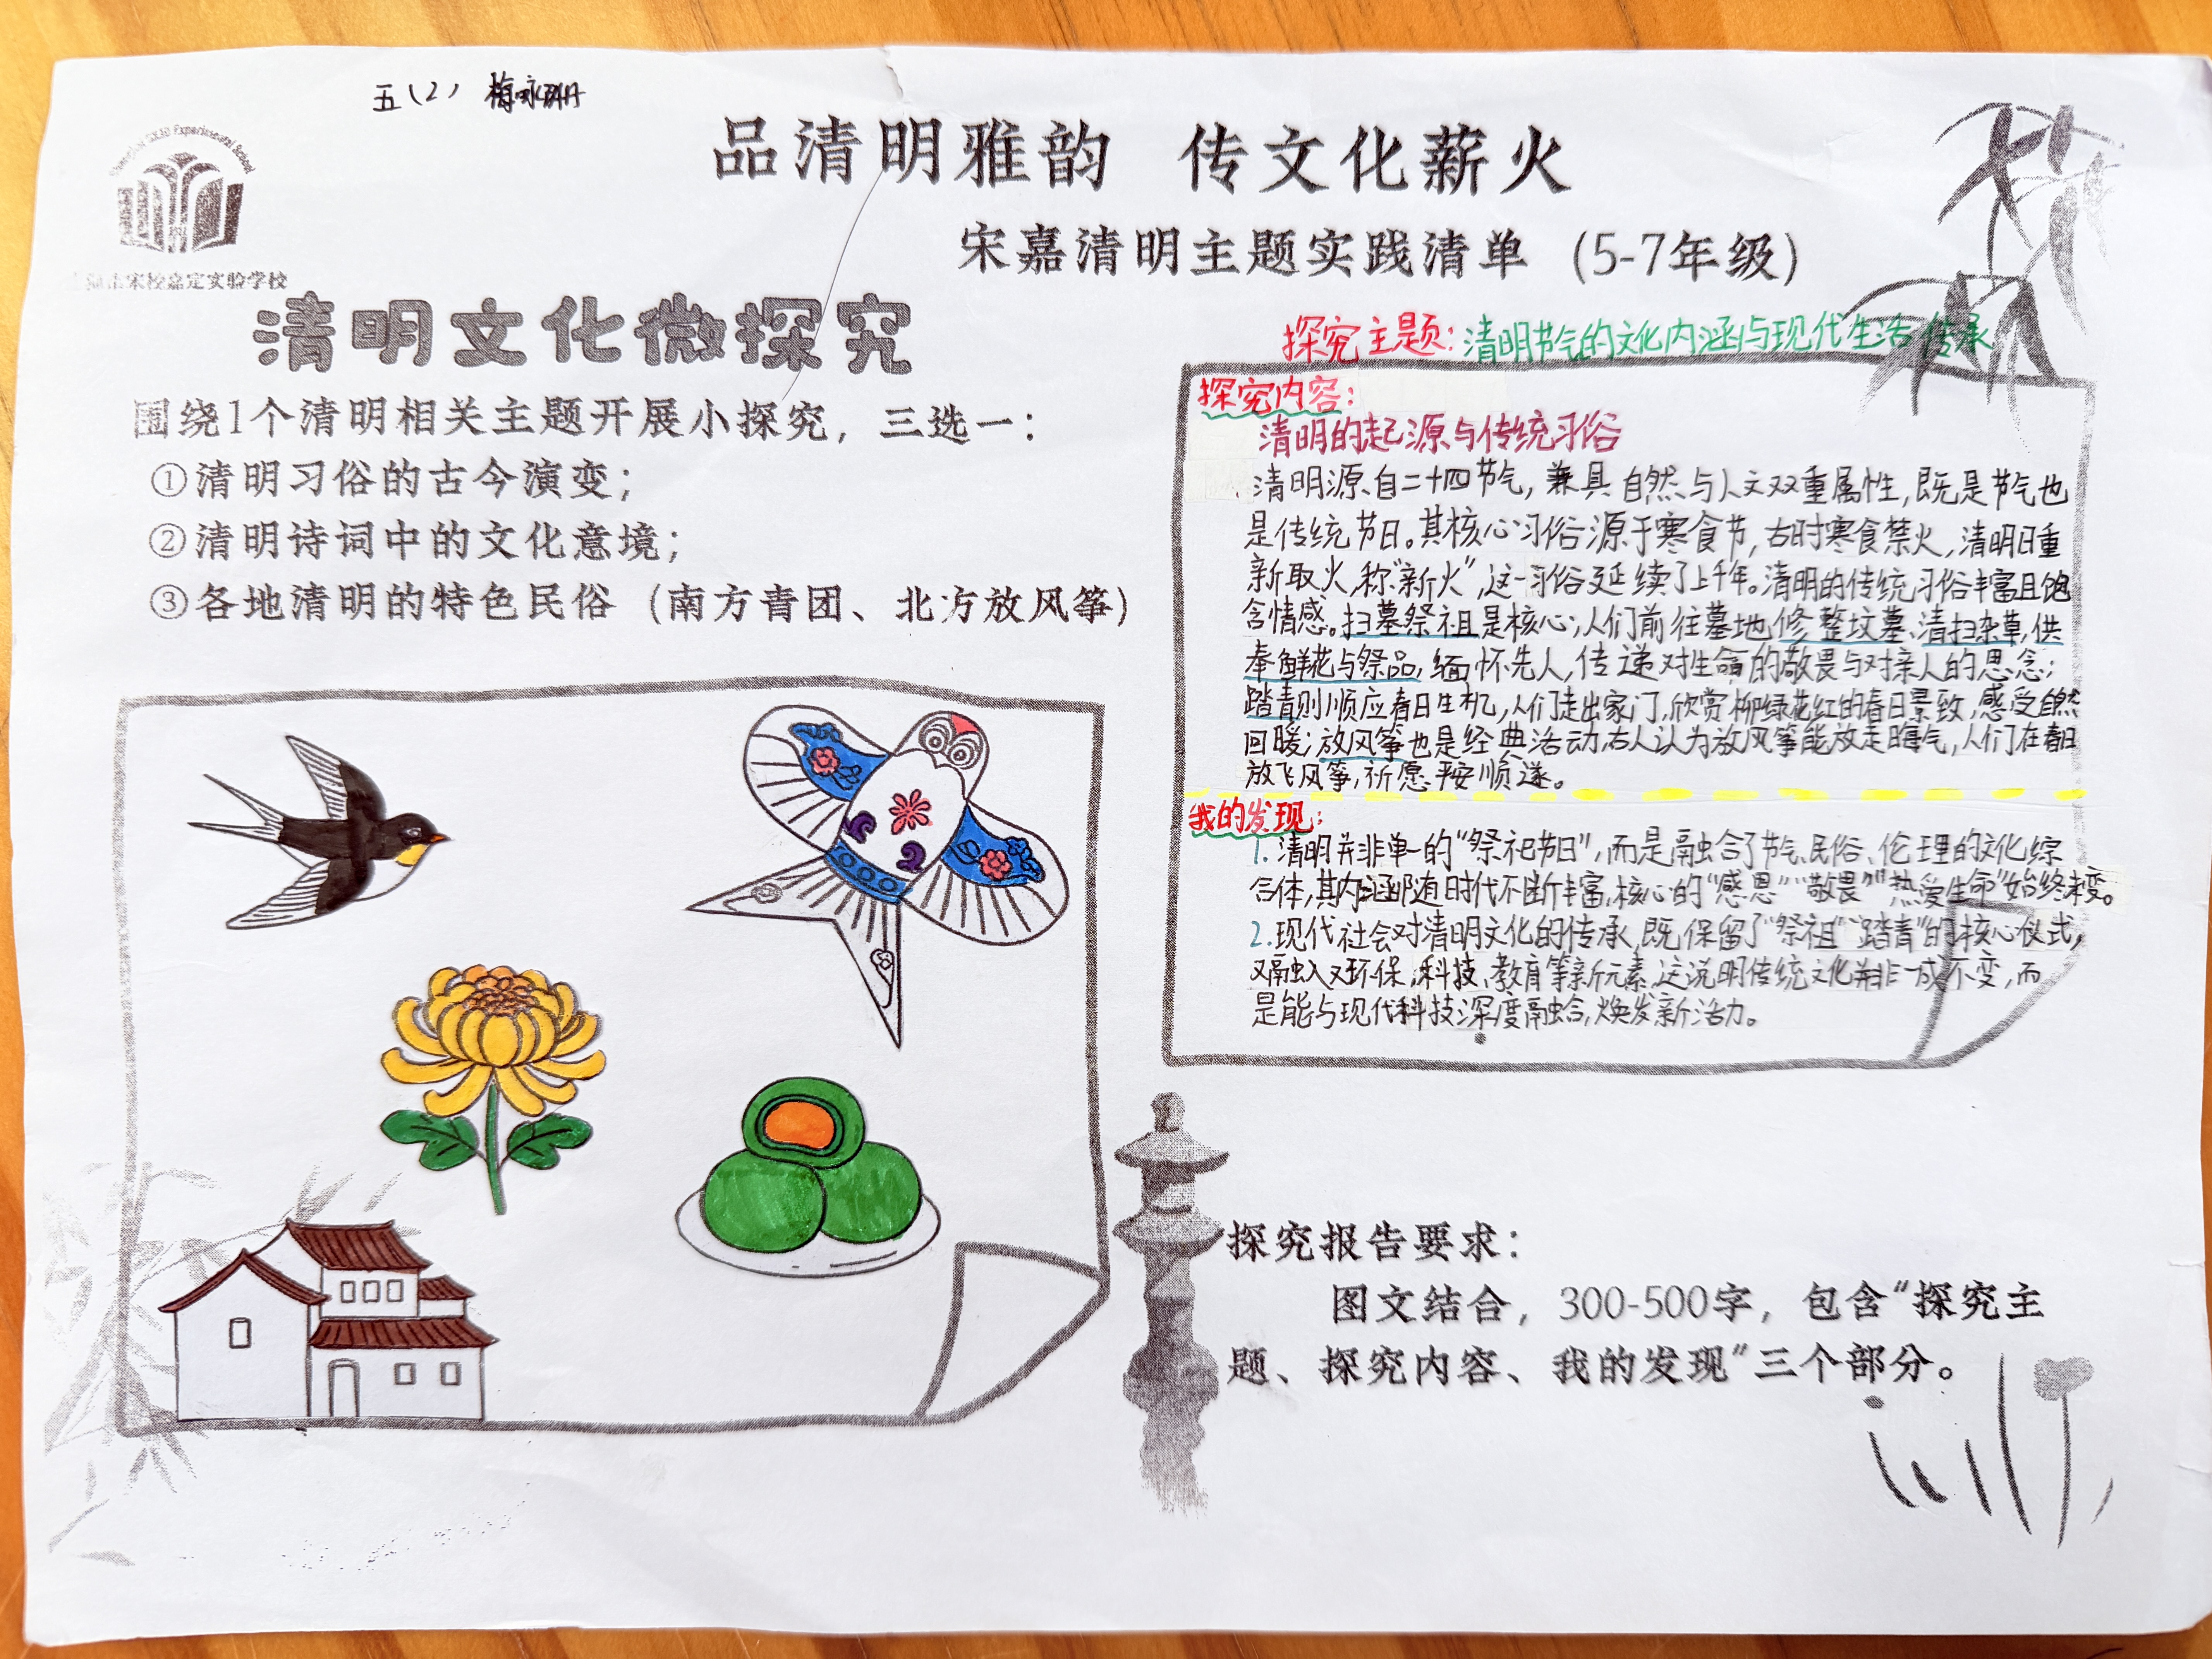 五（2） 梅咏珊
Experimental School
宋校嘉定实验学校
品清明雅韵 传文化薪火
宋嘉清明主题实践清单（5-7年级）
清明文化微探究
围绕1个清明相关主题开展小探究，三选一：
①清明习俗的古今演变；
②清明诗词中的文化意境；
③各地清明的特色民俗（南方青团、北方放风筝）
探究主题：清明节气的文化内涵与现代生活传承
探究内容：
清明的起源与传统习俗
清明源自二十四节气，兼具自然与人文双重属性，既是节气也
是传统节日。其核心习俗源于寒食节，古时寒食禁火，清明日重
新取火，称“新火”，这一习俗延续了上千年。清明的传统习俗丰富且饱
含情感。扫墓祭祖是核心；人们前往墓地修整坟墓、清扫杂草，供
奉鲜花与祭品，缅怀先人，传递对生命的敬畏与对亲人的思念；
踏青则顺应春日生机，人们走出家门，欣赏柳绿花红的春日景致，感受自然
回暖；放风筝也是经典活动，古人认为放风筝能放走晦气，人们在春日
放飞风筝，祈愿平安顺遂。
我的发现：
1.清明并非单一的“祭祀节日”，而是融合了节气、民俗、伦理的文化综
合体，其内涵即随时代不断丰富，核心的“感恩”“敬畏”“热爱生命”始终未变。
2.现代社会对清明文化的传承，既保留了“祭祖”“踏青”的核心仪式，
又融入又环保，科技、教育等新元素，这说明传统文化并非一成不变，而
是能与现代科技深度融合，焕发新活力。
探究报告要求：
图文结合，300-500字，包含“探究主
题、探究内容、我的发现”三个部分。